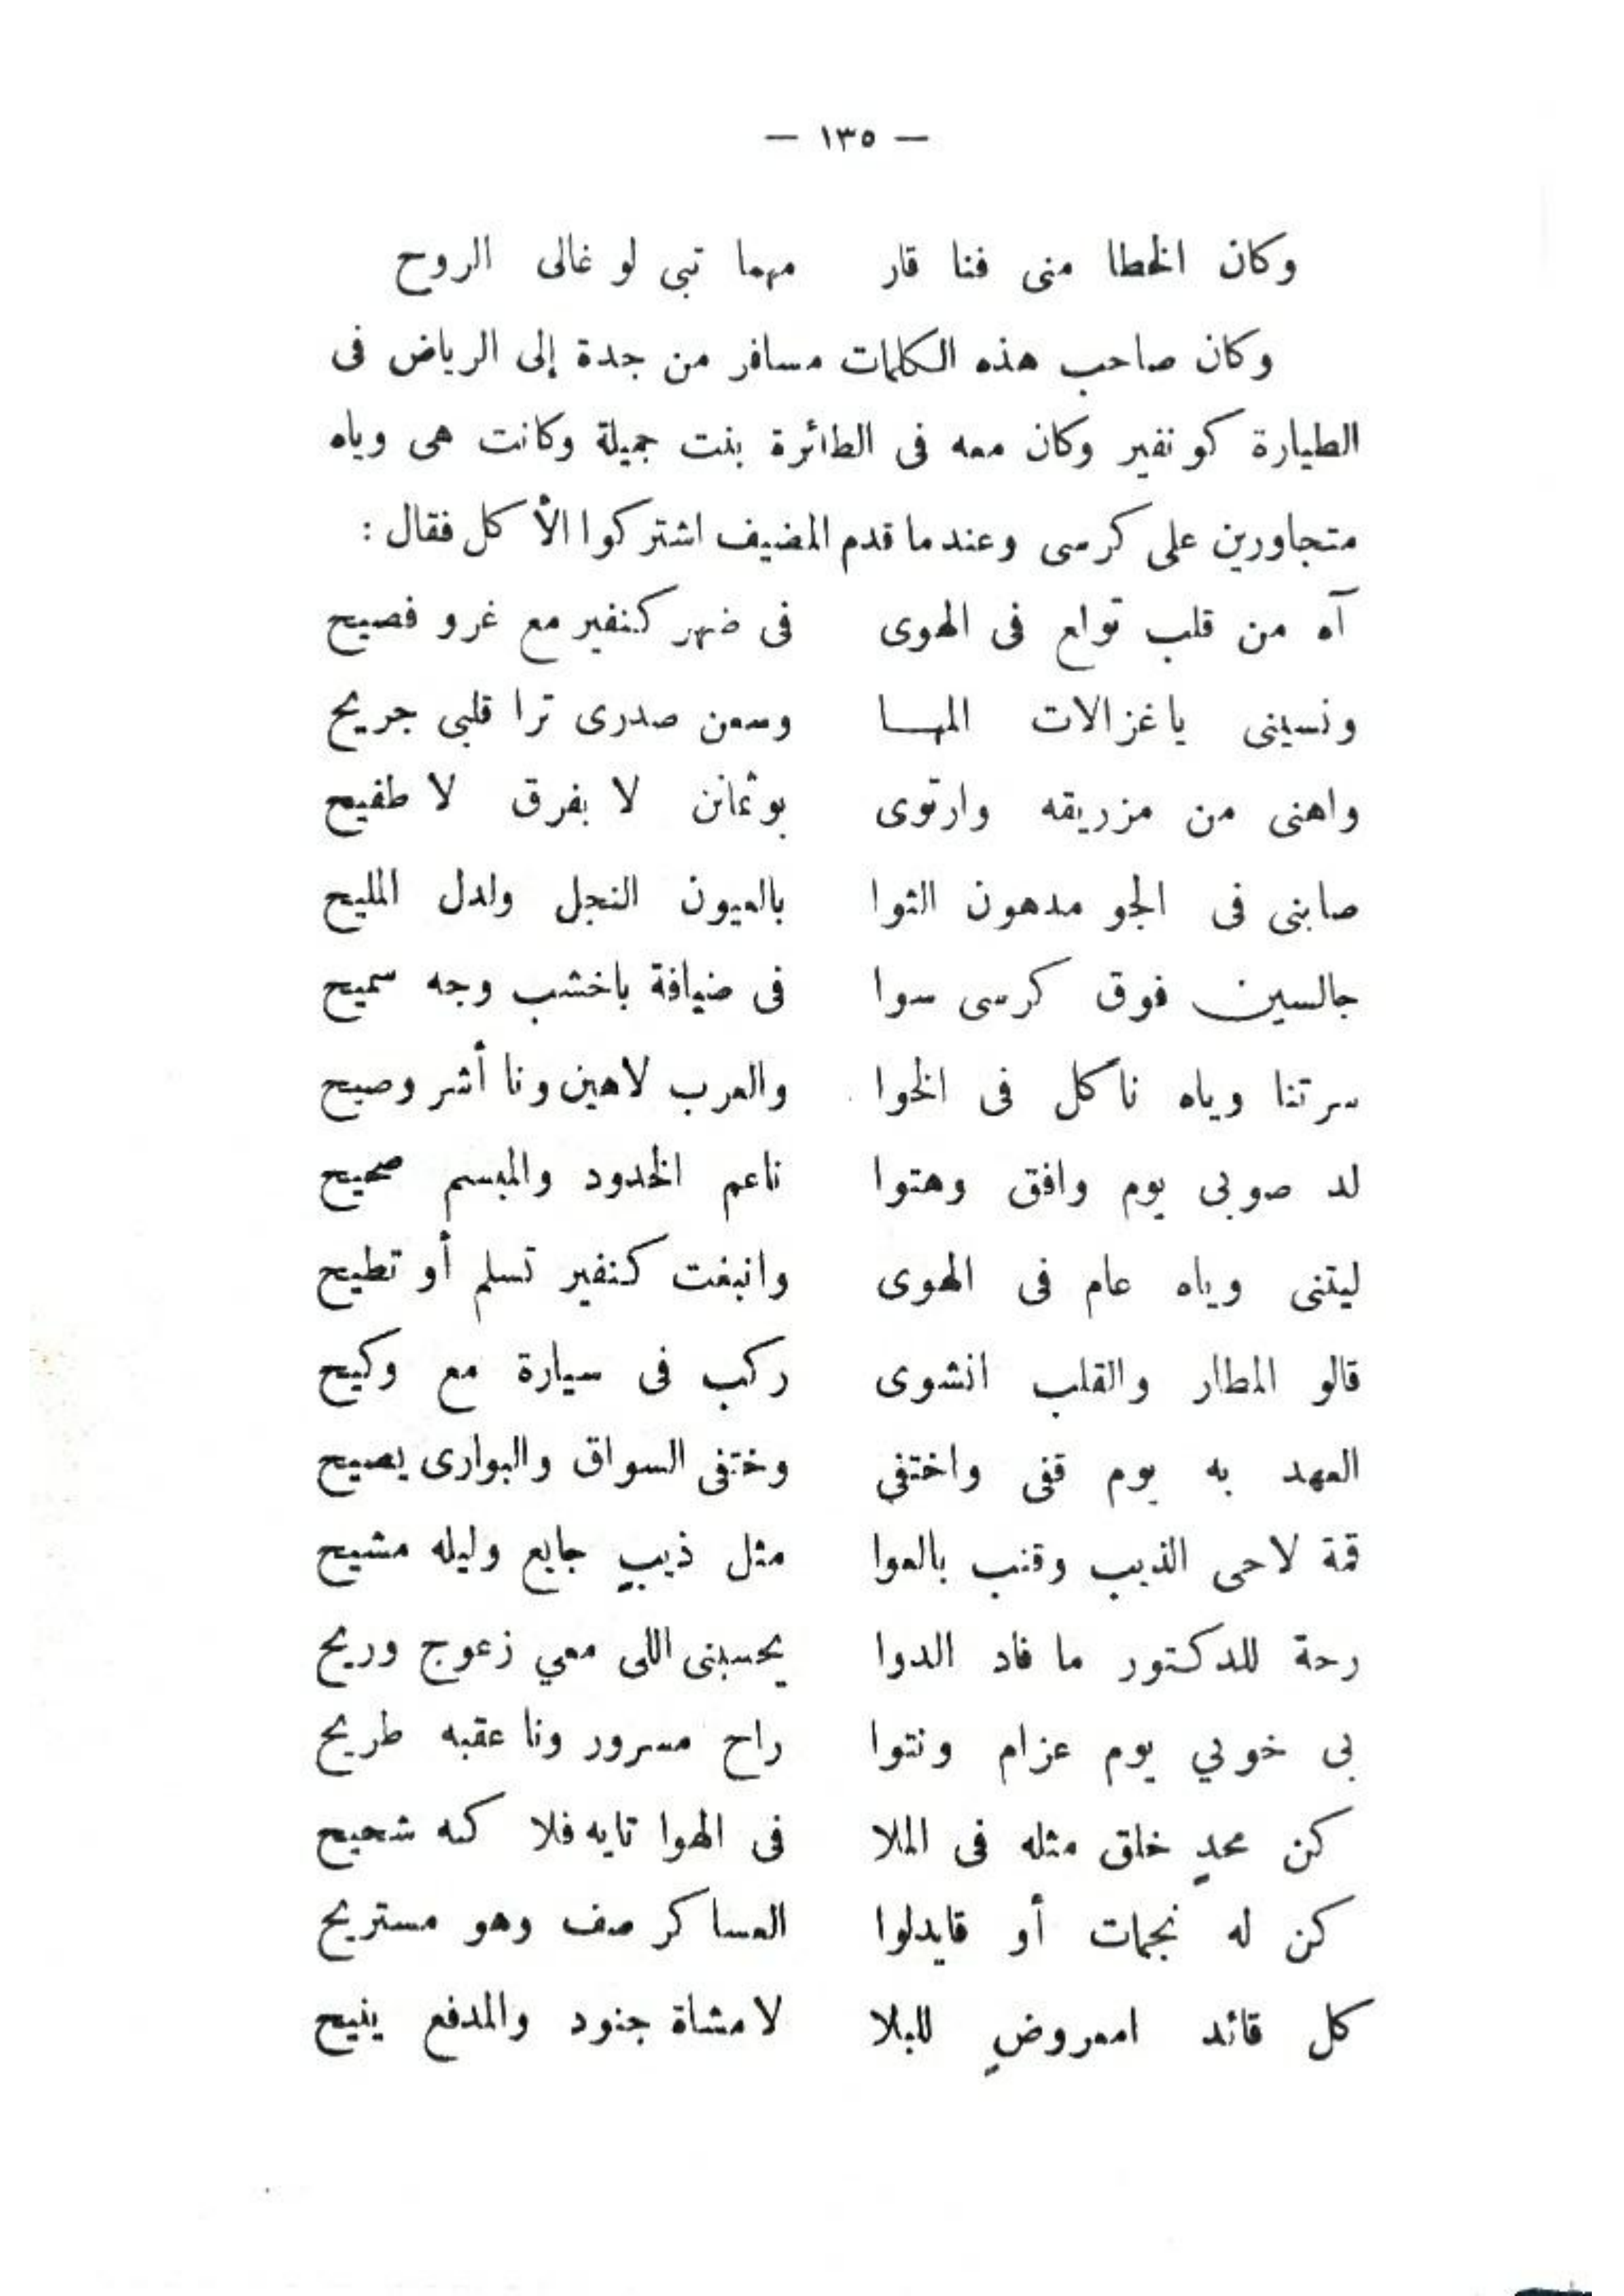 — ١٣٥ —
وكان الخطا منى فنا قار مهما تبى لو غالى الروح
وكان صاحب هذه الكلمات مسافر من جدة إلى الرياض فى
الطيارة كونفير وكان معه فى الطائرة بنت جميلة وكانت هى وياه
متجاورين على كرسى وعندما قدم المضيف اشتركوا الأكل فقال :
آه من قلب تولع فى الهوى فى ضهر كنفير مع غرو فصيح
ونسينى ياغزالات المها وسعن صدرى ترا قلبى جريح
واهنى من مزريقه وارتوى بوثمانن لا بفرق لا طفيح
صابنى فى الجو مدهون الثوا بالعيون النجل ولدل المليح
جالسين فوق كرسى سوا فى ضيافة باخشب وجه سميح
سرتنا وياه ناكل فى الخوا والعرب لاهين ونا أشر وصيح
لد صوبى يوم وافق وهتوا ناعم الخدود والمبسم صحيح
ليتنى وياه عام فى الهوى وانبغت كنفير تسلم أو تطيح
قالو المطار والقلب انشوى ركب فى سيارة مع وكيح
العهد به يوم قفى واختفى وختفى السواق والبوارى يصيح
قمة لاحى الذيب وقنب بالعوا مثل ذيبٍ جايع وليله مشيح
رحة للدكتور ما فاد الدوا يحسبنى اللى معي زعوج وريح
بى خوبي يوم عزام ونتوا راح مسرور ونا عقبه طريح
كن محدٍ خلق مثله فى الملا فى الهوا تايه فلا كنه شحيح
كن له نجمات أو قايدلوا العساكر صف وهو مستريح
كل قائد امعروضٍ للبلا لامشاة جنود والمدفع ينيح